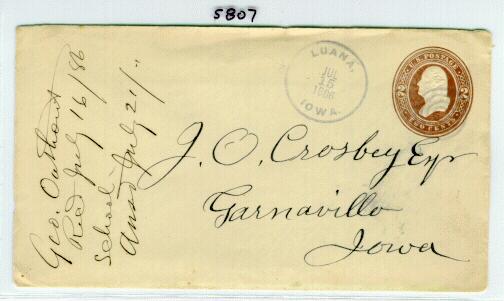 5807
LUANA,
JUL
15
1886
IOWA.
U.S. POSTAGE
TWO CENTS
2
2
J. O. Crosby Esqr
Garnavillo
Iowa
Geo. Outhout
Recd July 16/86
School
Ansd July 21/"